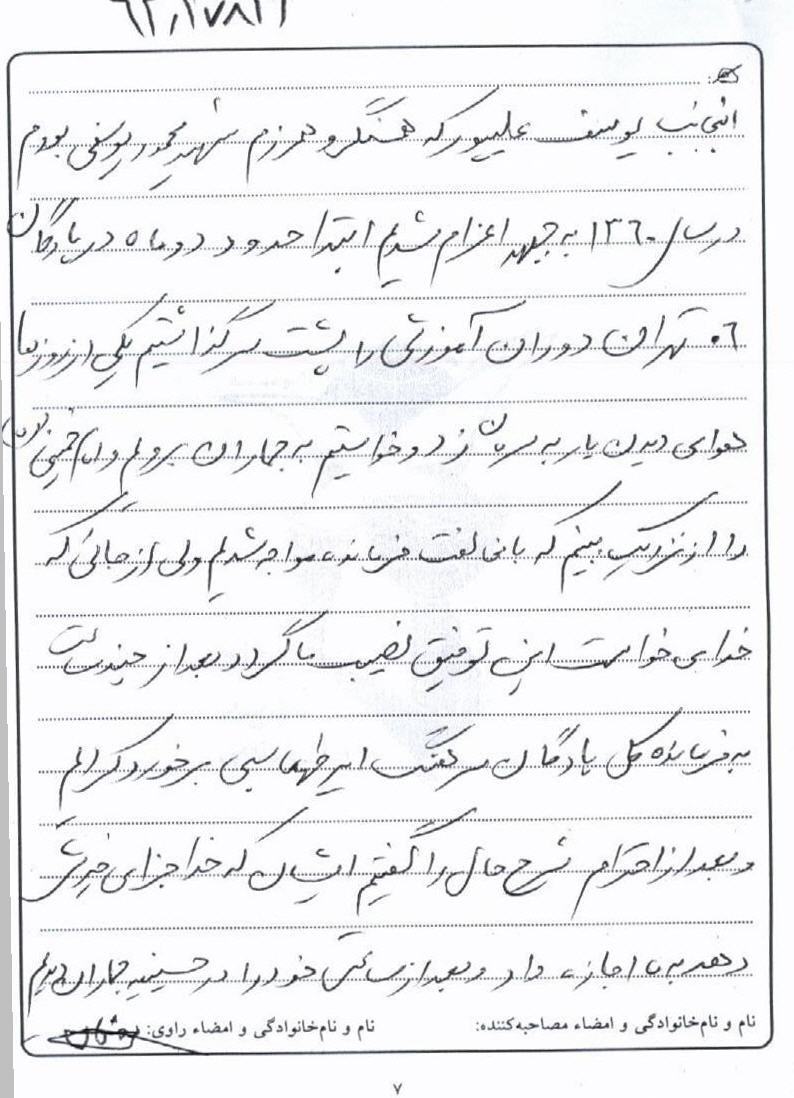 اینجانب یوسف علیپور که همسنگر و همرزم شهید محمود یوسفی بودم
در سال ۱۳۶۰ به جبهه اعزام شدیم ابتدا حدود دو ماه در پادگان
۰۶ تهران دوران آموزشی را پشت سر گذاشتیم یکی از روزها
هوای دیدن یار به سرمان زد و خواستیم به جماران برویم و امام خمینی
را از نزدیک ببینیم که با مخالفت فرمانده مواجه شدیم ولی از جائی که
خدا می خواست این توفیق نصیب ما گردد بعد از چند ساعت
به فرمانده کل پادگان سرهنگ امیر طهماسبی برخورد کردیم
و بعد از احترام شرح حال را گفتیم ایشان که خدا جزای خیرش
دهد به ما اجازه داد و بعد از ساعتی خود را در حسینیه جماران دیدیم
نام و نام‌خانوادگی و امضاء مصاحبه‌کننده: نام و نام‌خانوادگی و امضاء راوی:
۷